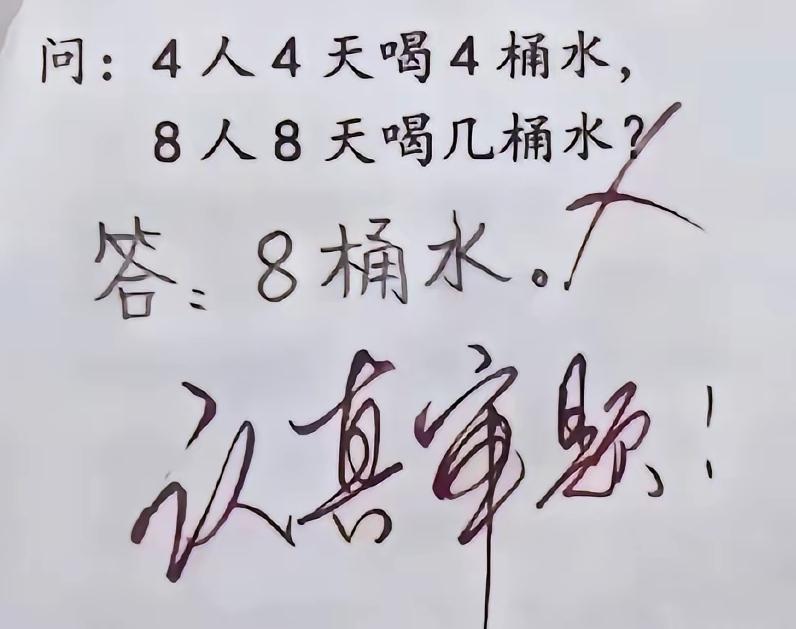 问：4人4天喝4桶水，
8人8天喝几桶水？
答：8桶水。
认真审题！